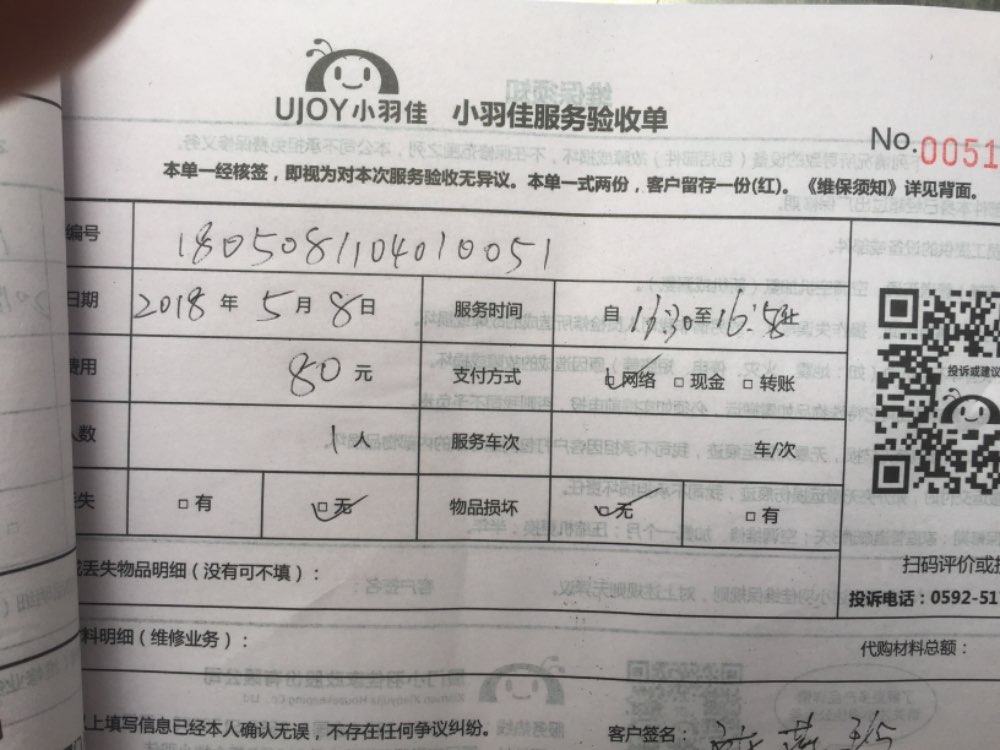 UJOY小羽佳 小羽佳服务验收单
No.0051
本单一经核签，即视为对本次服务验收无异议。本单一式两份，客户留存一份(红)。《维保须知》详见背面。
编号 1805081104010051
日期 2018年5月8日 服务时间 自 至
费用 80元 支付方式 网络 □现金 □转账
人数 1人 服务车次 车/次
失 □有 □无 物品损坏 □无 □有
投诉或建议
丢失物品明细（没有可不填）：
扫码评价或
投诉电话：0592-51
料明细（维修业务）：
代购材料总额：
上填写信息已经本人确认无误，不存在任何争议纠纷。
客户签名：